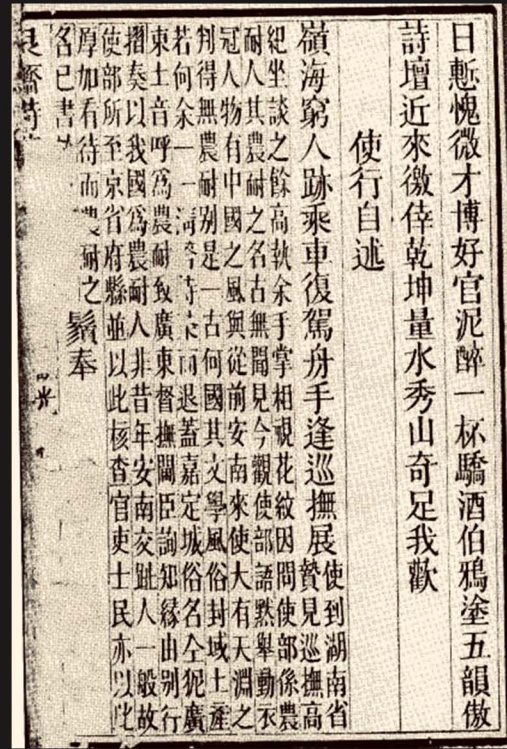 日慙愧微才博好官泥醉一杯驕酒伯鴉塗五韻傲
詩壇近來徼倖乾坤量水秀山奇足我歡
使行自述
嶺海窮人跡乘車復駕舟手逢巡撫展
使到湖南省
贄見巡撫高
杞坐談之餘高執余手掌相視花紋因問使部係農
耐人其農耐之名古無聞見今觀使部語黙舉動衣
冠人物有中國之風與從前安南來使大有天淵之
判得無農耐别是一古何國其文學風俗封域土產
若何余一一而退蓋嘉定城俗名仝狔廣
東土音呼爲農耐致廣東督撫閫臣詢知緣由别行
摺奏以我國爲農耐人非昔年安南交趾人一般故
使部所至京省府縣並以此核查官吏士民亦以此
厚加看待而農耐之
名已書
鬚奉